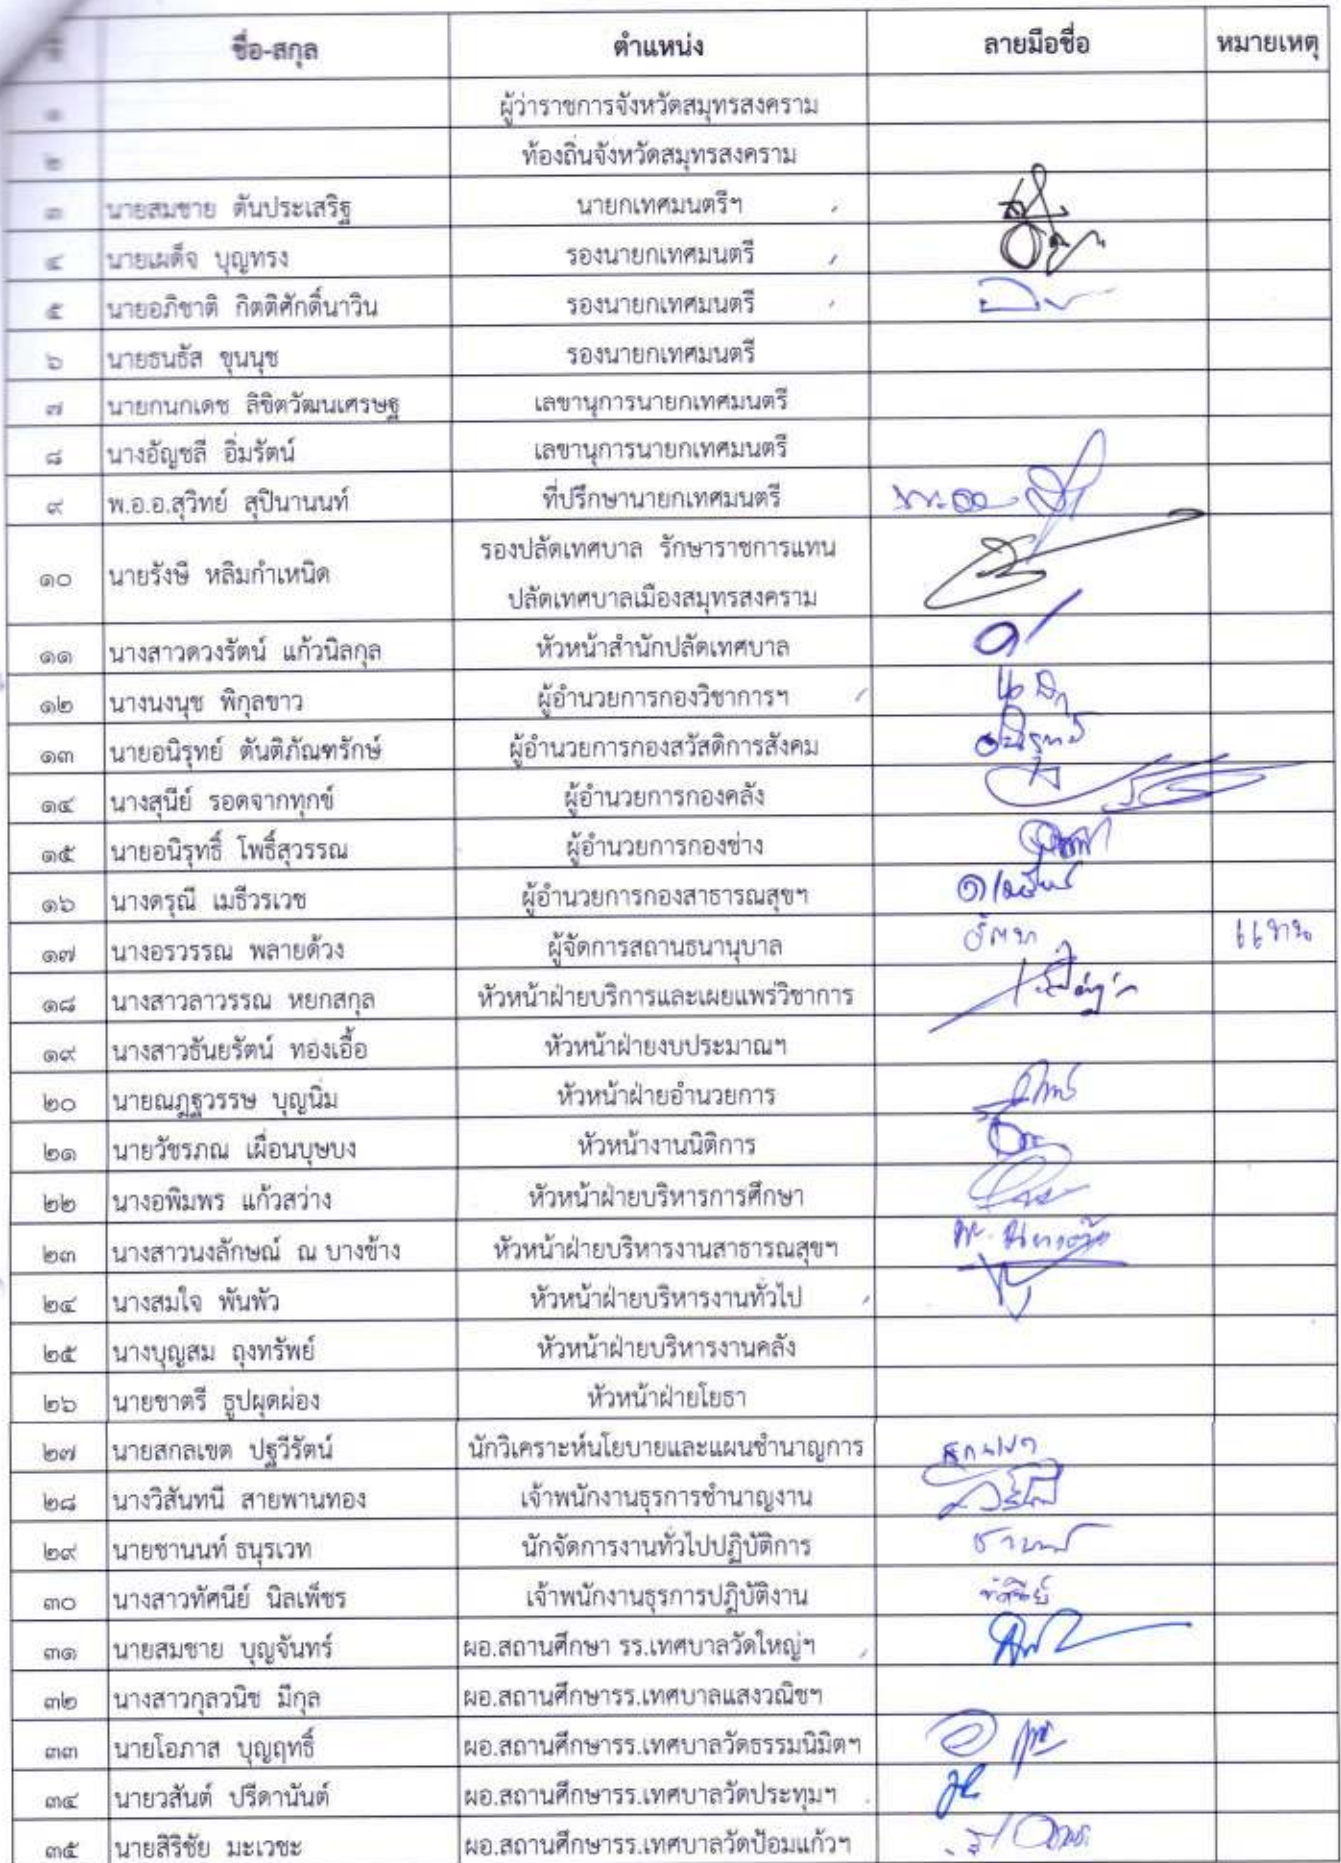 ที่ ชื่อ-สกุล ตำแหน่ง ลายมือชื่อ หมายเหตุ
๑ ผู้ว่าราชการจังหวัดสมุทรสงคราม
๒ ท้องถิ่นจังหวัดสมุทรสงคราม
๓ นายสมชาย ตันประเสริฐ นายกเทศมนตรีฯ
๔ นายเผด็จ บุญทรง รองนายกเทศมนตรี
๕ นายอภิชาติ กิตติศักดิ์นาวิน รองนายกเทศมนตรี
๖ นายธนธัส ขุนนุช รองนายกเทศมนตรี
๗ นายกนกเดช ลิขิตวัฒนเศรษฐ เลขานุการนายกเทศมนตรี
๘ นางอัญชลี อิ่มรัตน์ เลขานุการนายกเทศมนตรี
๙ พ.อ.อ.สุวิทย์ สุปินานนท์ ที่ปรึกษานายกเทศมนตรี
๑๐ นายรังษี หลิมกำเหนิด รองปลัดเทศบาล รักษาราชการแทน
ปลัดเทศบาลเมืองสมุทรสงคราม
๑๑ นางสาวดวงรัตน์ แก้วนิลกุล หัวหน้าสำนักปลัดเทศบาล
๑๒ นางนงนุช พิกุลขาว ผู้อำนวยการกองวิชาการฯ
๑๓ นายอนิรุทย์ ตันติภัณฑรักษ์ ผู้อำนวยการกองสวัสดิการสังคม
๑๔ นางสุนีย์ รอดจากทุกข์ ผู้อำนวยการกองคลัง
๑๕ นายอนิรุทธิ์ โพธิ์สุวรรณ ผู้อำนวยการกองช่าง
๑๖ นางดรุณี เมธีวรเวช ผู้อำนวยการกองสาธารณสุขฯ
๑๗ นางอรวรรณ พลายด้วง ผู้จัดการสถานธนานุบาล แทน
๑๘ นางสาวลาวรรณ หยกสกุล หัวหน้าฝ่ายบริการและเผยแพร่วิชาการ
๑๙ นางสาวธันยรัตน์ ทองเอื้อ หัวหน้าฝ่ายงบประมาณฯ
๒๐ นายณฎฐวรรษ บุญนิ่ม หัวหน้าฝ่ายอำนวยการ
๒๑ นายวัชรภณ เผื่อนบุษบง หัวหน้างานนิติการ
๒๒ นางอพิมพร แก้วสว่าง หัวหน้าฝ่ายบริหารการศึกษา
๒๓ นางสาวนงลักษณ์ ณ บางช้าง หัวหน้าฝ่ายบริหารงานสาธารณสุขฯ
๒๔ นางสมใจ พันพัว หัวหน้าฝ่ายบริหารงานทั่วไป
๒๕ นางบุญสม ถุงทรัพย์ หัวหน้าฝ่ายบริหารงานคลัง
๒๖ นายชาตรี ธูปผุดผ่อง หัวหน้าฝ่ายโยธา
๒๗ นายสกลเขต ปฐวีรัตน์ นักวิเคราะห์นโยบายและแผนชำนาญการ
๒๘ นางวิสันทนี สายพานทอง เจ้าพนักงานธุรการชำนาญงาน
๒๙ นายชานนท์ ธนุรเวท นักจัดการงานทั่วไปปฏิบัติการ
๓๐ นางสาวทัศนีย์ นิลเพ็ชร เจ้าพนักงานธุรการปฎิบัติงาน ทัศนีย์
๓๑ นายสมชาย บุญจันทร์ ผอ.สถานศึกษา รร.เทศบาลวัดใหญ่ฯ
๓๒ นางสาวกุลวนิช มีกุล ผอ.สถานศึกษารร.เทศบาลแสงวณิชฯ
๓๓ นายโอภาส บุญฤทธิ์ ผอ.สถานศึกษารร.เทศบาลวัดธรรมนิมิตฯ
๓๔ นายวสันต์ ปรีดานันต์ ผอ.สถานศึกษารร.เทศบาลวัดประทุมฯ
๓๕ นายสิริชัย มะเวชะ ผอ.สถานศึกษารร.เทศบาลวัดป้อมแก้วฯ